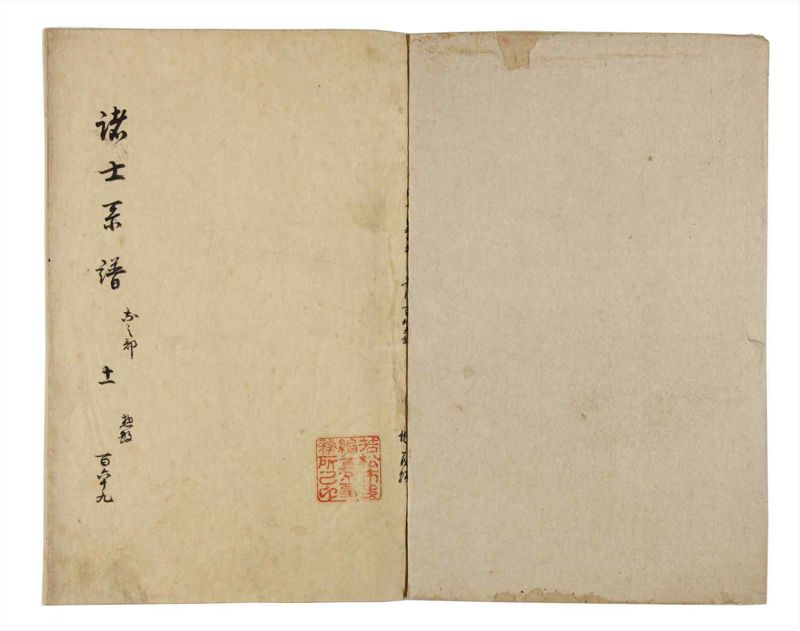 諸士系譜 おノ部 十一 惣数 百六十九
若松市史
編纂事
務所之印